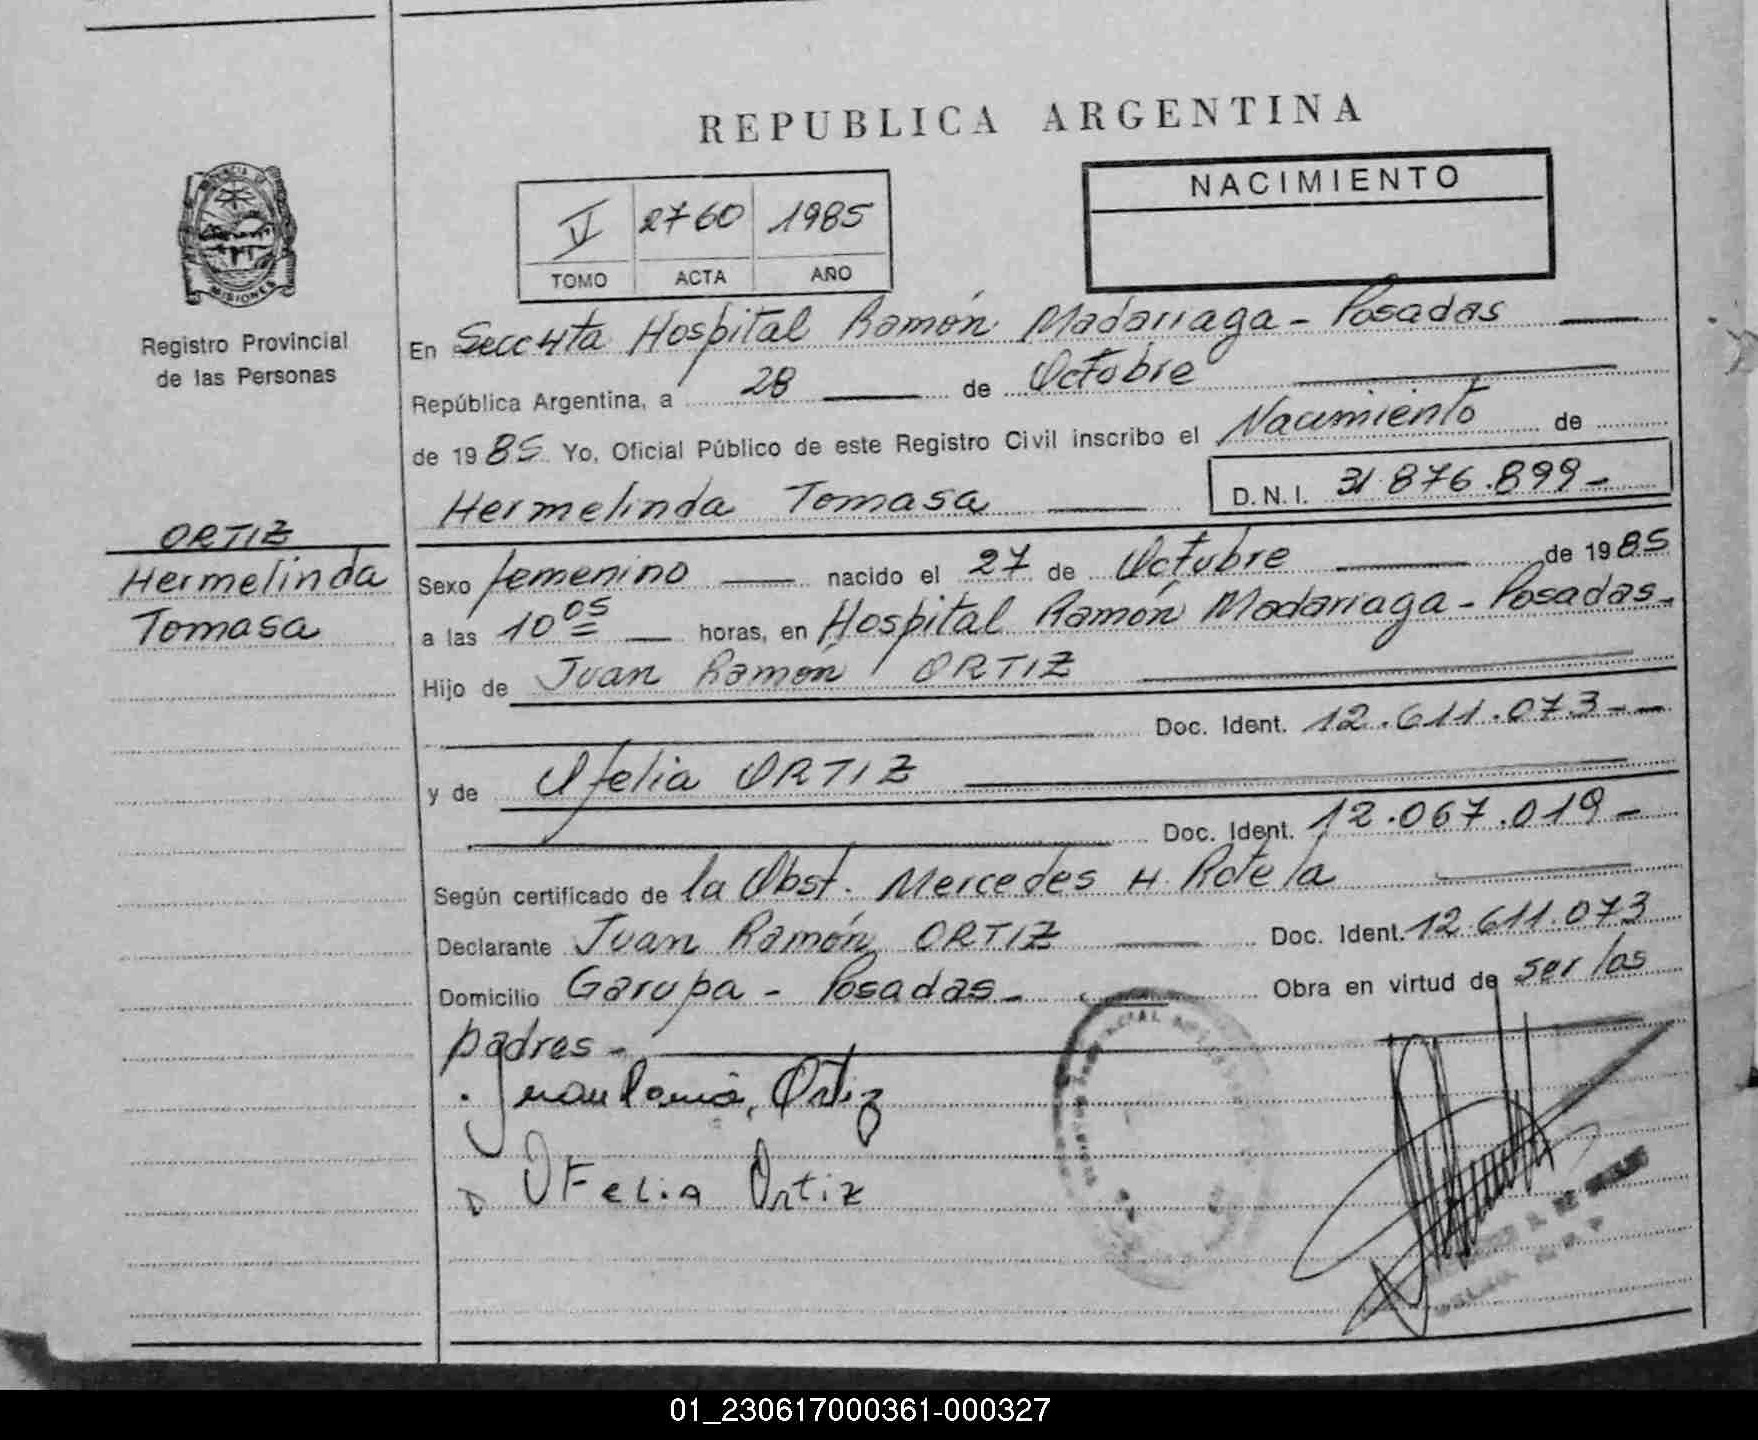 REPUBLICA ARGENTINA
PROVINCIA DE
MISIONES
Registro Provincial
de las Personas
V 2760 1985
TOMO ACTA AÑO
NACIMIENTO
En Secc 4ta Hospital Ramón Madariaga - Posadas
República Argentina, a 28 de Octubre
de 1985 Yo, Oficial Público de este Registro Civil inscribo el Nacimiento de
Hermelinda Tomasa D.N.I. 31.876.899-
ORTIZ
Hermelinda
Tomasa
Sexo femenino nacido el 27 de Octubre de 1985
a las 10 05 horas, en Hospital Ramón Madariaga - Posadas-
Hijo de Juan Ramón ORTIZ
Doc. Ident. 12.611.073--
y de Ofelia ORTIZ
Doc. Ident. 12.067.019-
Según certificado de la Obst. Mercedes H. Rotela
Declarante Juan Ramón ORTIZ Doc. Ident. 12.611.073
Domicilio Garupa - Posadas- Obra en virtud de ser los
padres-
Juan Ramón Ortiz
OFelia Ortiz
01_230617000361-000327